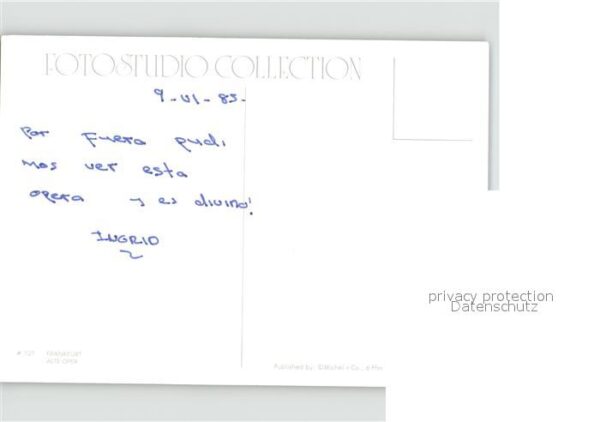 FOTOSTUDIO COLLECTION
9-VI-85-
Por fuera pudi
mos ver esta
opera y es divino!
INGRID
privacy protection
Datenschutz
# 127 FRANKFURT
ALTE OPER
Published by: Michel + Co.,